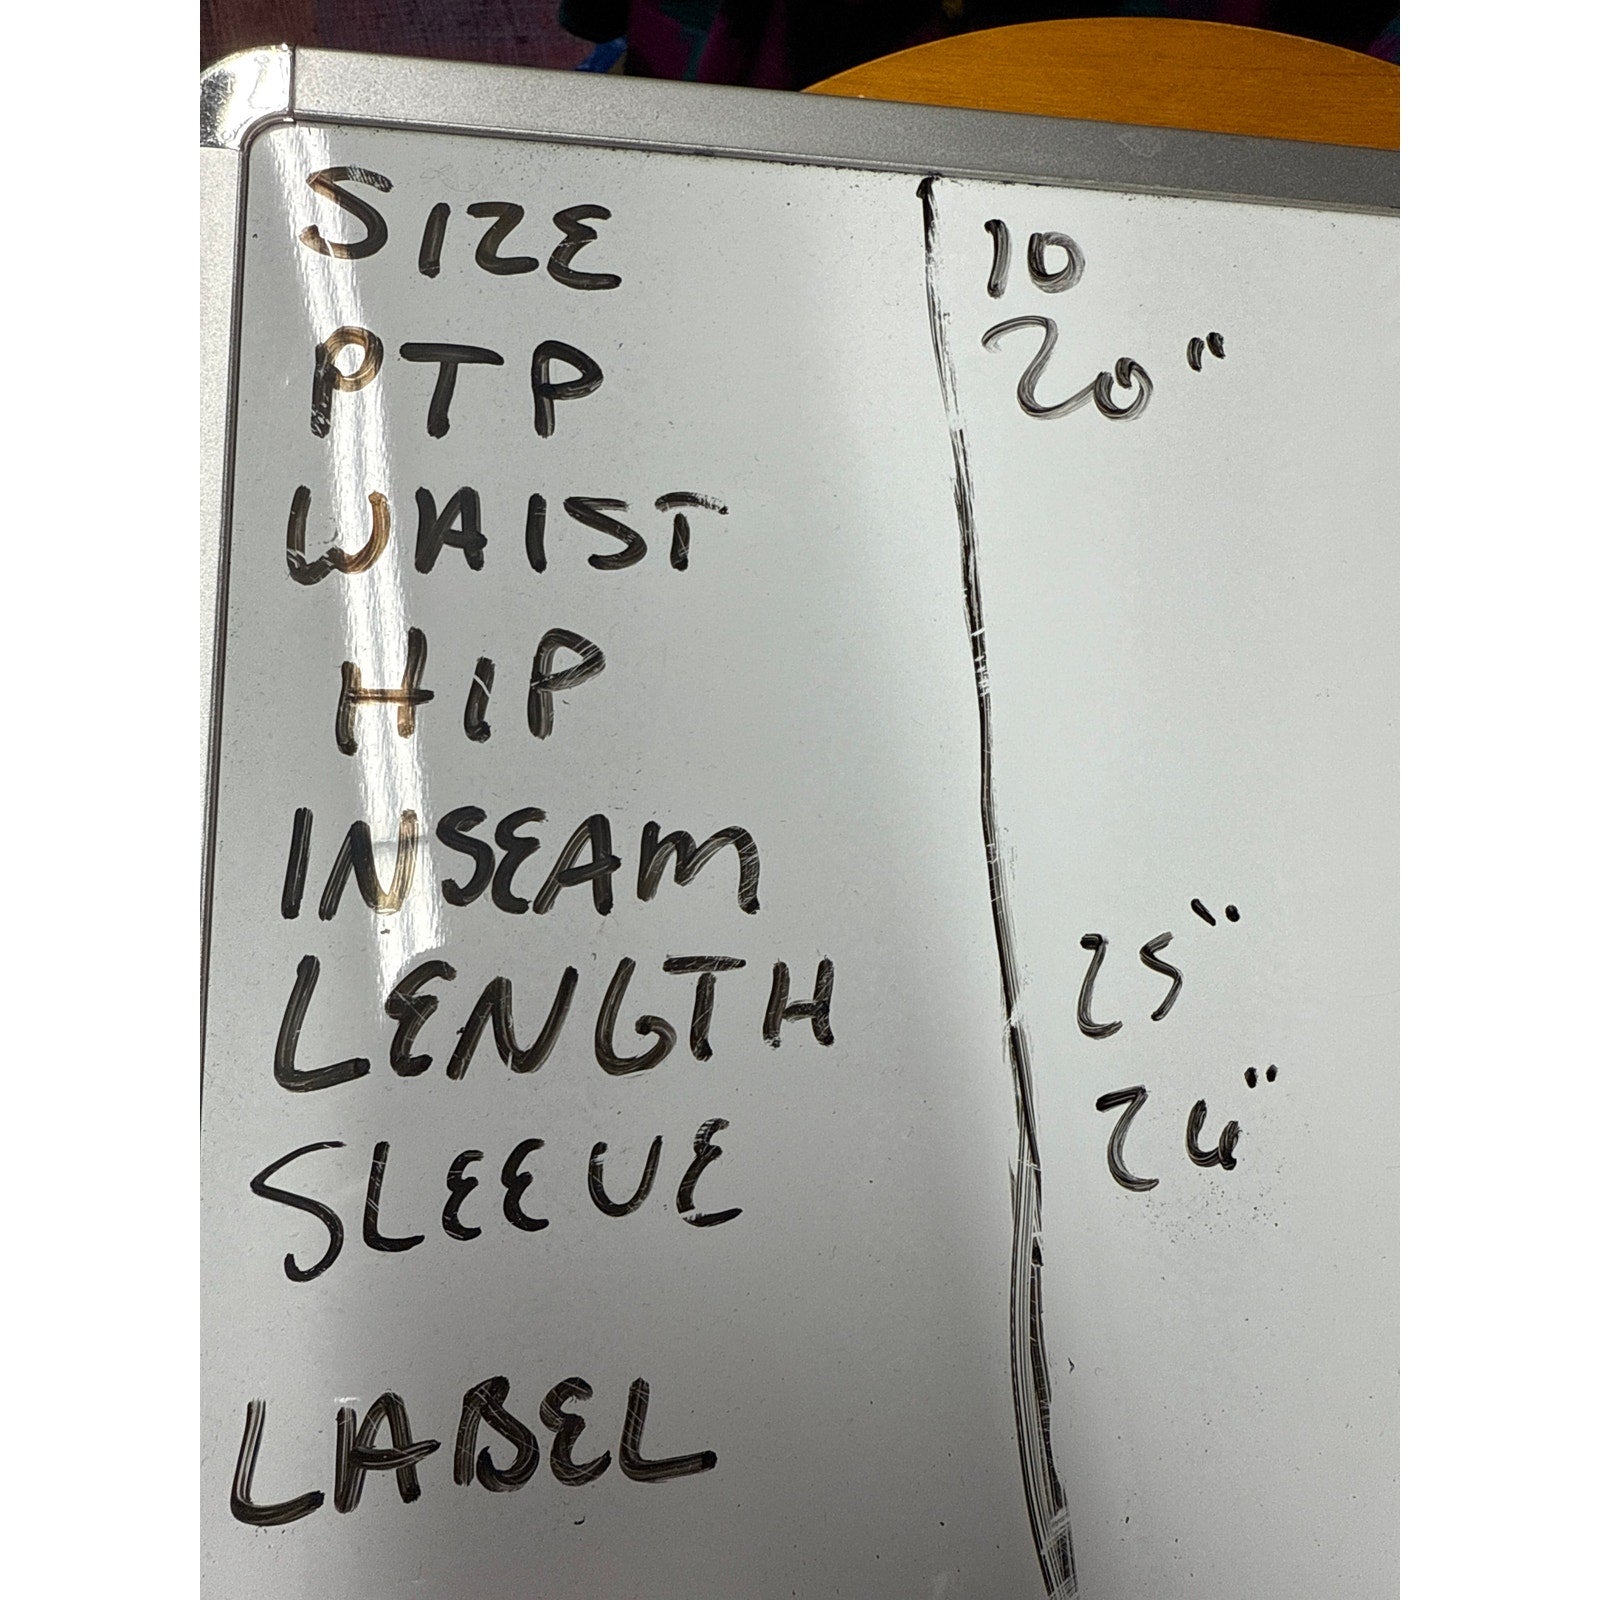 SIZE 10
PTP 20"
WAIST
HIP
INSEAM
LENGTH 25"
SLEEVE 24"
LABEL